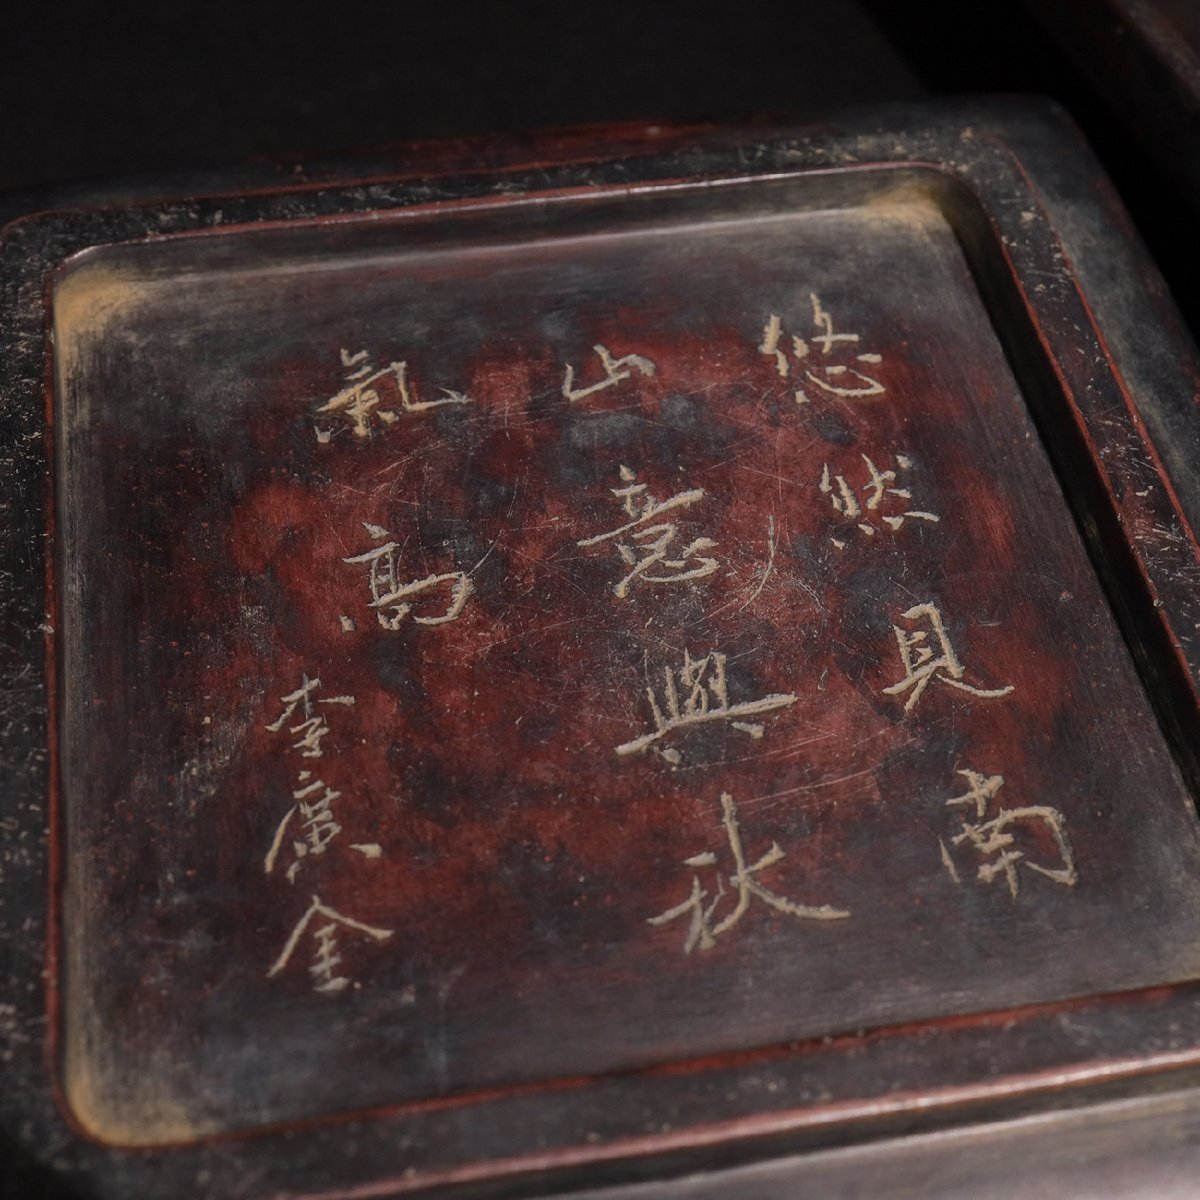 悠然見南
山意與秋
氣高
李廣金